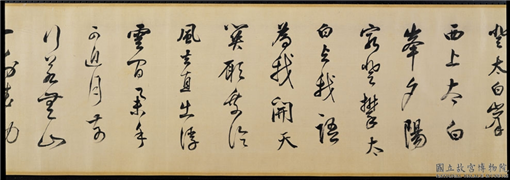 登太白峯
西上太白
峯夕陽
窮登攀太
白與我語
為我開天
關願乘泠
風去直出浮
雲間舉手
可近月前
行若無山
一別武功
國立故宮博物院